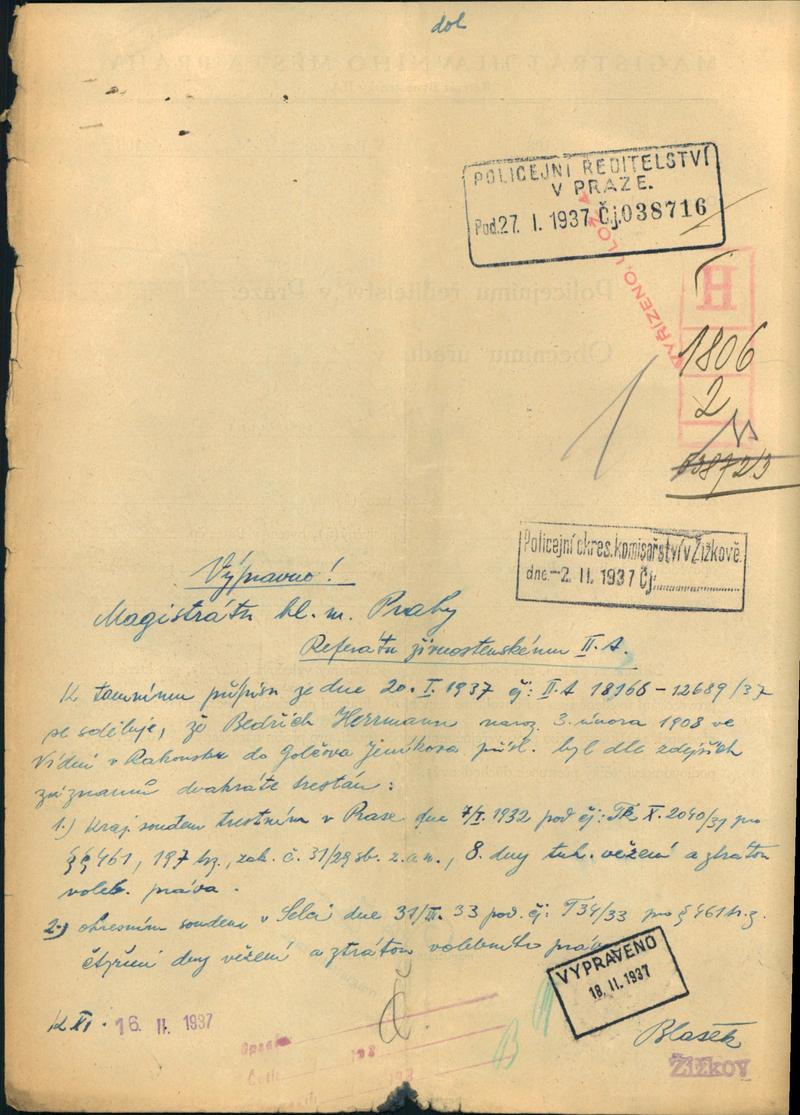 dol
POLICEJNÍ ŘEDITELSTVÍ
V PRAZE.
Pod. 27. I. 1937 Čj. 038716
VYŘÍZENO, ULOŽ
H
1806
2
Policejní okres. komisařství v Žižkově.
dne -2. II. 1937 Čj.
Výpravno!
Magistrátu hl. m. Prahy
Referátu živnostenskému II. A.
K tamnímu přípisu ze dne 20. I. 1937 čj: II. A 18168-12689/37
se sděluje, že Bedřich Herrmann naroz. 3. února 1908 ve
Vídni v Rakousku do Golčova Jeníkova přísl. byl dle zdejších
záznamů dvakráte trestán:
1.) Kraj. soudem trestním v Praze dne 7/I. 1932 pod čj: Tk X. 2040/31 pro
§§ 461, 197 tr. z., zák. č. 31/29 sb. z. a n., 8. dny tuh. vězení a ztrátou
voleb. práva.
2.) okresním soudem v Selci dne 31/III. 33 pod. čj: T 34/33 pro § 461 tr. z.
čtyřmi dny vězení a ztrátou volebního práva
VYPRAVENO
18. II. 1937
K XI. 16. II. 1937
Blasek
Opsal
193
Četl
193
B
Žižkov